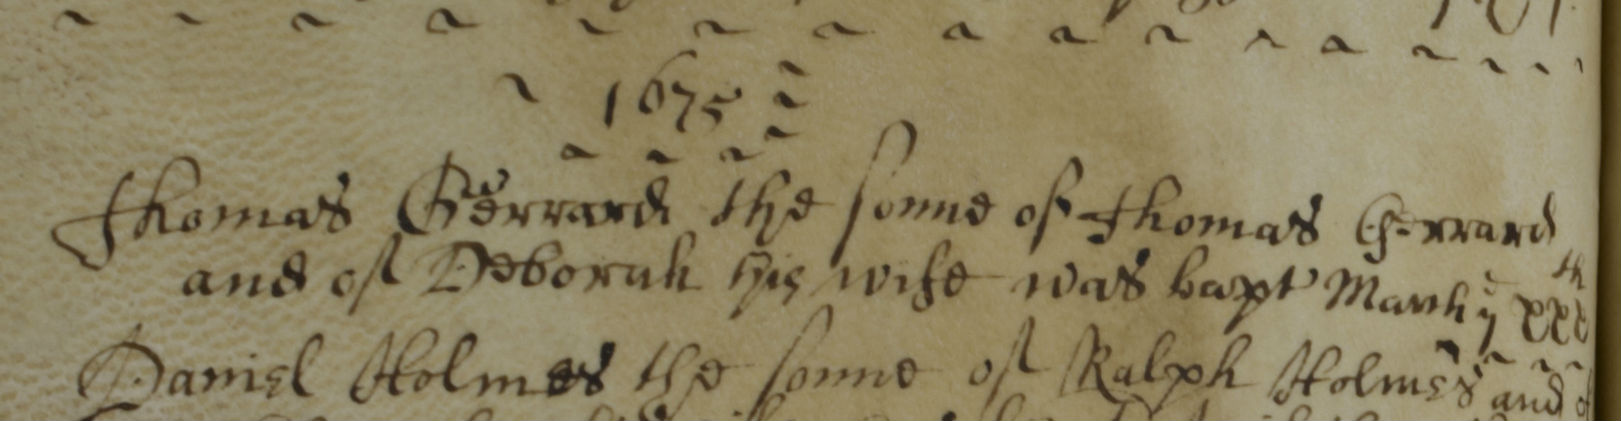 1675
Thomas Gerrard the sonne of Thomas Gerrard
and of Deborah his wife was bapt March yᵉ xxxth
Daniel Holmes the sonne of Ralph Holmes and of